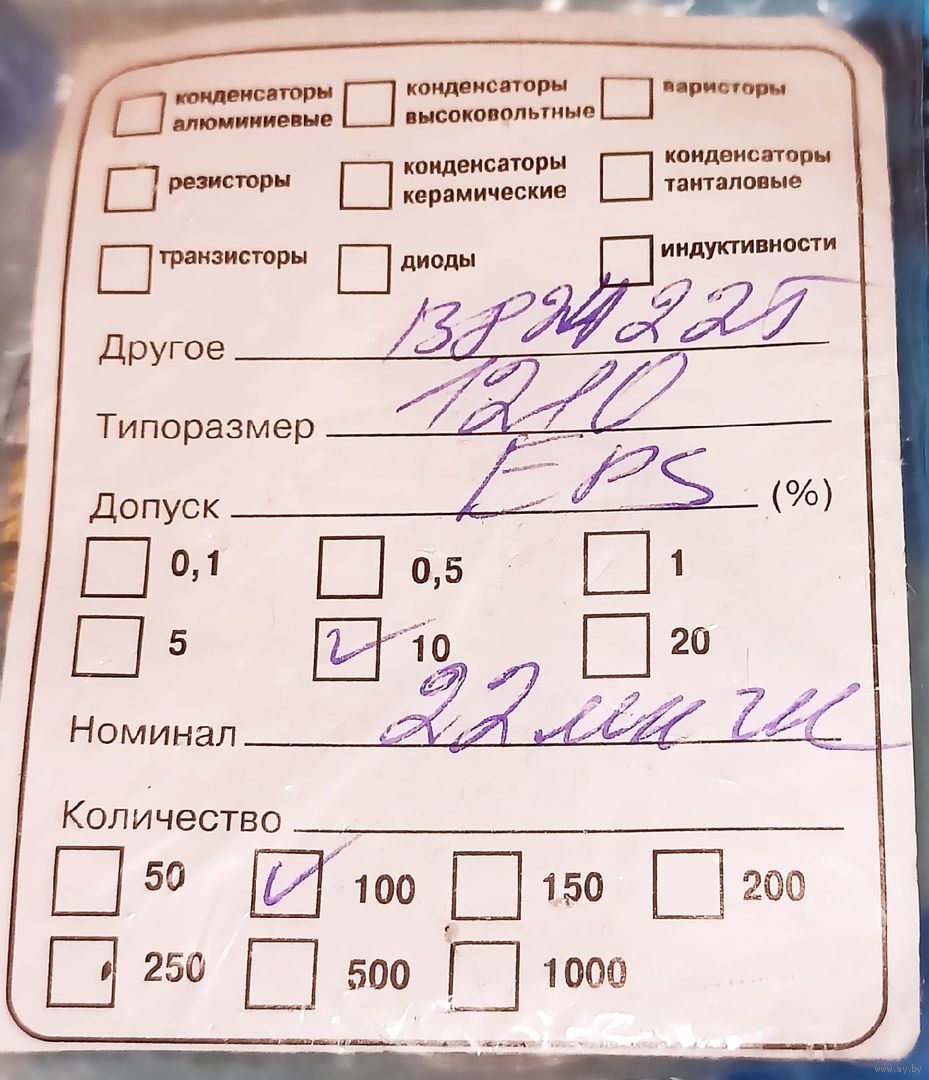 конденсаторы алюминиевые
конденсаторы высоковольтные
варисторы
резисторы
конденсаторы керамические
конденсаторы танталовые
транзисторы
диоды
индуктивности
Другое B82422T
Типоразмер 1210
Допуск EPS (%)
0,1 0,5 1
5 10 20
Номинал 22 мкн
Количество
50 100 150 200
250 500 1000
www.ay.by